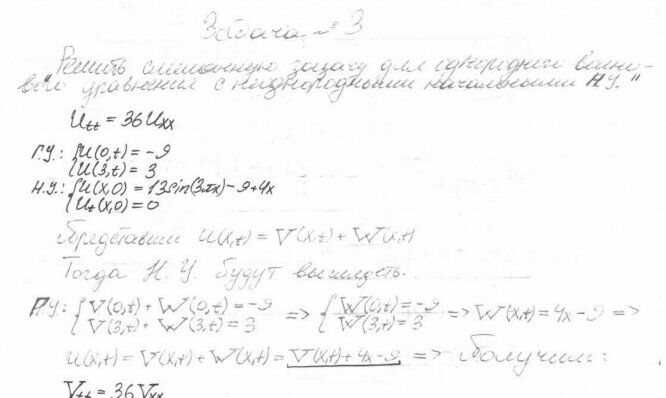 Задача № 3
"Решить смешанную задачу для однородного волно-
вого уравнения с неоднородными начальными Н.У."
Utt = 36Uxx
Г.У.: {U(0,t) = -9
{U(3,t) = 3
Н.У.: {U(x,0) = 13sin(3πx) - 9 + 4x
{Ut(x,0) = 0
Представим U(x,t) = V(x,t) + W(x,t)
Тогда Н.У. будут выглядеть.
Г.У.: {V(0,t) + W(0,t) = -9 => {W(0,t) = -9 => W(x,t) = 4x - 9 =>
{V(3,t) + W(3,t) = 3 {W(3,t) = 3
U(x,t) = V(x,t) + W(x,t) = V(x,t) + 4x - 9 => Получим:
Vtt = 36Vxx